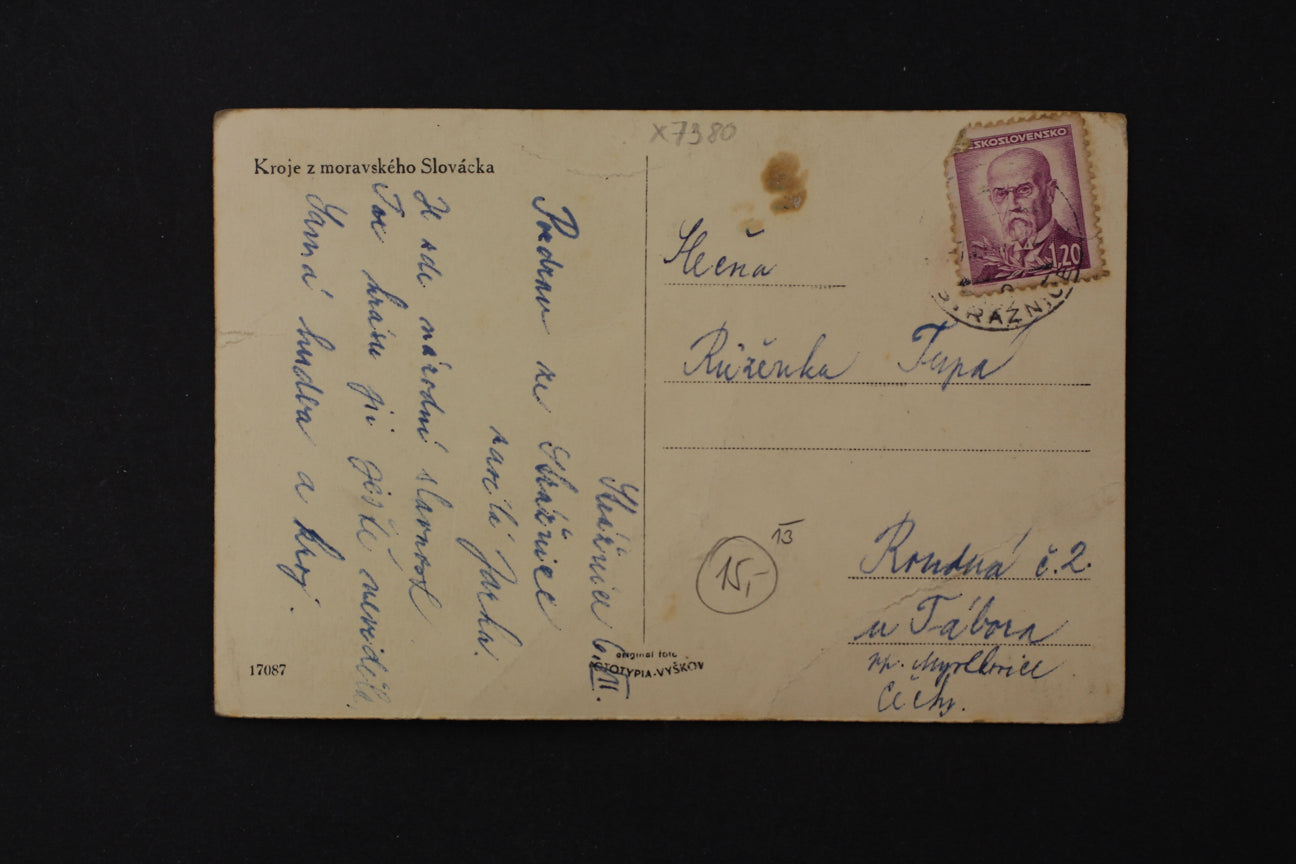 x7380
Kroje z moravského Slovácka
Strážnice 6.VII.
Pozdrav ze Strážnice
zasílá Jarka.
Je zde národní slavnost
Tak krásu jsi ještě neviděla.
Samá hudba a kroj.
17087
original foto
FOTOTYPIA-VYŠKOV
ČESKOSLOVENSKO
1,20
STRÁŽNICE
Slečna
Růženka Tupa
13
15,-
Roudná č.2.
u Tábora
Čechy.